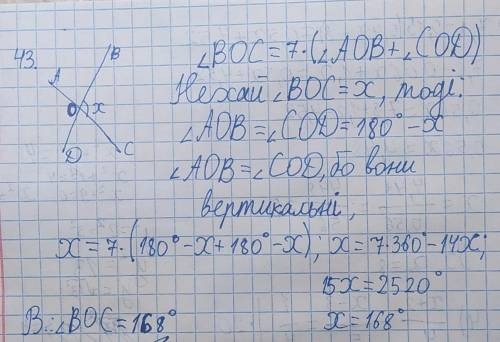 43.
A
B
O
x
D
C
∠BOC=7·(∠AOB+∠COD)
Нехай ∠BOC=x, тоді:
∠AOB=∠COD=180°-x
∠AOB=∠COD, бо вони
вертикальні,
x=7·(180°-x+180°-x); x=7·360°-14x;
15x=2520°
x=168°
В.: ∠BOC=168°